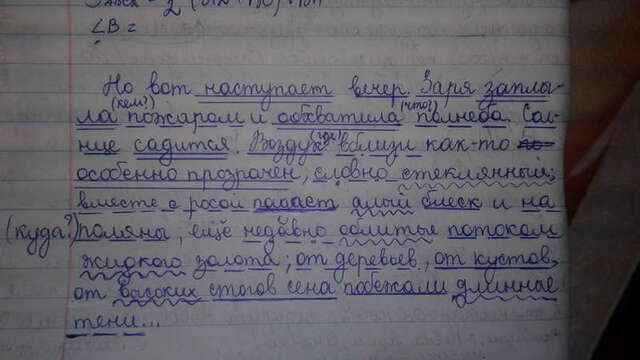 ∠B =
Но вот наступает вечер. Заря запы-
(чем?) (что?)
ла пожаром и обхватила полнеба. Сол-
нце садится. Воздух вблизи как-то
(где?)
особенно прозрачен, словно стеклянный;
вместе с росой падает алый блеск и на
(куда?) поляны, ещё недавно облитые потоками
жидкого золота; от деревьев, от кустов,
от высоких стогов сена побежали длинные
тени...